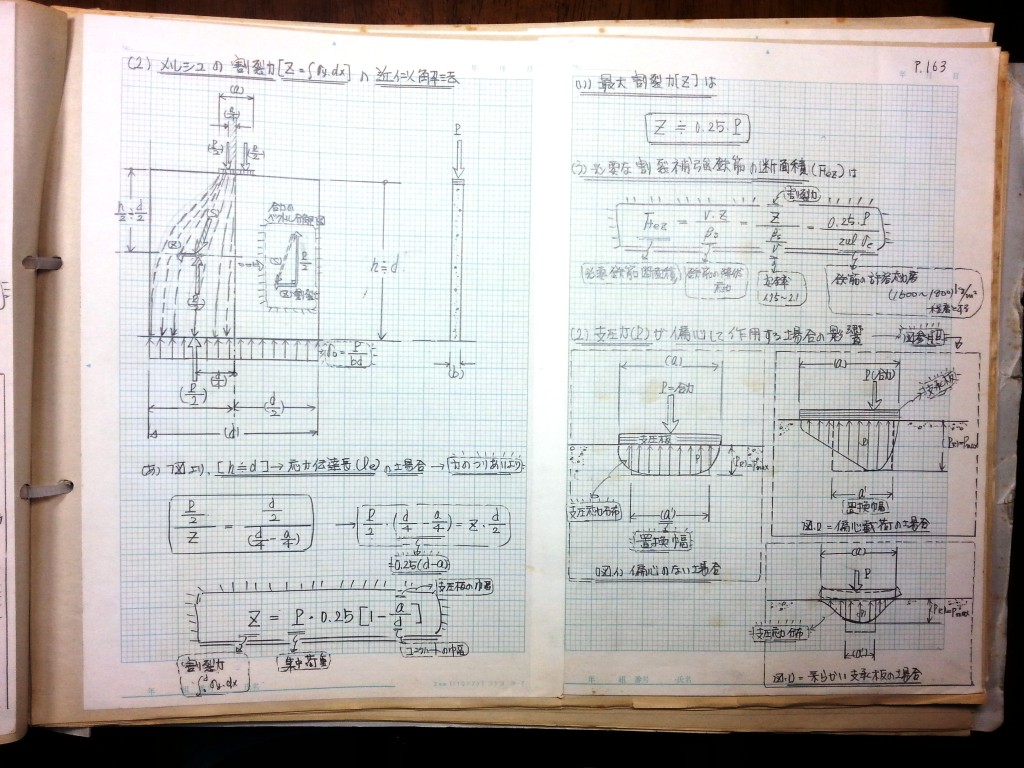 (2) メルシュの 割裂力[Z=∫σy.dx] の 近似解三表
(a)
P/2
P/2
h/2≒d/2
(Z)
合力の
(Z)割裂力
P/2
h≒d
P
(b)
σ0=P/bd
(P/2)
(d/4)
(d/2)
(d)
(あ) 下図より、[h≒d]→応力伝達長(le)の場合→力のつりあいより
(P/2)/Z = (d/2)/(d/4-a/4) → P/2・(d/4-a/4)=Z・d/2
=0.25(d-a)
支圧板の巾
Z = P・0.25[1-a/d]
割裂力
∫σy.dx
集中荷重
コンクリートの巾
P.163
(い) 最大 割裂力[Z]は
Z≒0.25.P
(う) 必要な 割裂補強鉄筋の断面積(Fez)は
割裂力
Fez = ν.Z/βs = Z/(βs/ν) = 0.25.P/zul σe
必要鉄筋断面積
鉄筋の降伏応力
安全率
1.75~2.1
鉄筋の許容応力度
(1600~1800)kg/cm²
程度とする
(2) 支圧力(P)が偏心して作用する場合の影響 → 図参照
(a)
P=合力
支圧板
P(z)=Pmax
支圧応力分布
(a')
置換幅
図.イ 偏心のない場合
(a)
P(合力)
支承板
P(z)=Pmax
a'
置換幅
図.ロ=偏心載荷の場合
(a)
P
P(z)=Pmax
支圧応力分布
(a')
図.ハ=柔らかい支承板の場合
年 組 番号 氏名